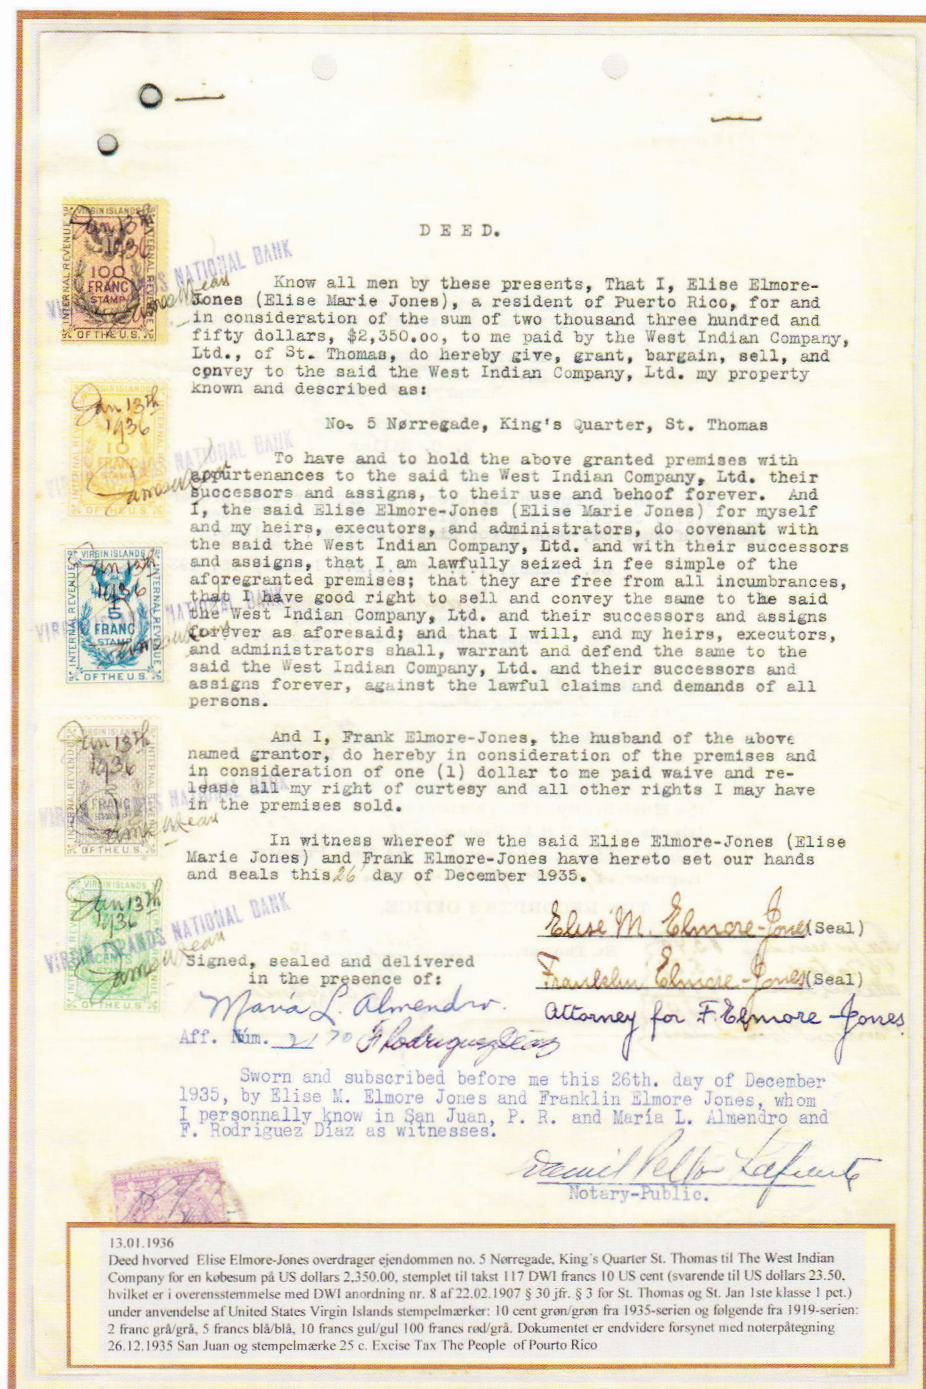 DEED.
Know all men by these presents, That I, Elise Elmore-
Jones (Elise Marie Jones), a resident of Puerto Rico, for and
in consideration of the sum of two thousand three hundred and
fifty dollars, $2,350.00, to me paid by the West Indian Company,
Ltd., of St. Thomas, do hereby give, grant, bargain, sell, and
convey to the said the West Indian Company, Ltd. my property
known and described as:
No. 5 Nørregade, King's Quarter, St. Thomas
To have and to hold the above granted premises with
appurtenances to the said the West Indian Company, Ltd. their
successors and assigns, to their use and behoof forever. And
I, the said Elise Elmore-Jones (Elise Marie Jones) for myself
and my heirs, executors, and administrators, do covenant with
the said the West Indian Company, Ltd. and with their successors
and assigns, that I am lawfully seized in fee simple of the
aforegranted premises; that they are free from all incumbrances,
that I have good right to sell and convey the same to the said
the West Indian Company, Ltd. and their successors and assigns
forever as aforesaid; and that I will, and my heirs, executors,
and administrators shall, warrant and defend the same to the
said the West Indian Company, Ltd. and their successors and
assigns forever, against the lawful claims and demands of all
persons.
And I, Frank Elmore-Jones, the husband of the above
named grantor, do hereby in consideration of the premises and
in consideration of one (1) dollar to me paid waive and re-
lease all my right of curtesy and all other rights I may have
in the premises sold.
In witness whereof we the said Elise Elmore-Jones (Elise
Marie Jones) and Frank Elmore-Jones have hereto set our hands
and seals this 26 day of December 1935.
Elise M. Elmore-Jones (Seal)
Signed, sealed and delivered
in the presence of:
Franklin Elmore-Jones (Seal)
María L. Almendro.
Attorney for F. Elmore-Jones.
Aff. Núm. 2170 F Rodriguez Diaz
Sworn and subscribed before me this 26th. day of December
1935, by Elise M. Elmore Jones and Franklin Elmore Jones, whom
I personnally know in San Juan, P. R. and María L. Almendro and
F. Rodriguez Díaz as witnesses.
Notary-Public.
VIRGIN ISLANDS
INTERNAL REVENUE
Jan 13th
1936
100
FRANC
STAMP
OF THE U.S.
VIRGIN ISLANDS NATIONAL BANK
Jan 13th
1936
10
FRANC
VIRGIN ISLANDS NATIONAL BANK
VIRGIN ISLANDS
INTERNAL REVENUE
Jan 13th
1936
5
FRANC
STAMP
OF THE U.S.
VIRGIN ISLANDS NATIONAL BANK
VIRGIN ISLANDS
Jan 13th
1936
FRANC
OF THE U.S.
VIRGIN ISLANDS NATIONAL BANK
VIRGIN ISLANDS
Jan 13th
1936
CENTS
OF THE U.S.
VIRGIN ISLANDS NATIONAL BANK
13.01.1936
Deed hvorved Elise Elmore-Jones overdrager ejendommen no. 5 Nørregade, King's Quarter St. Thomas til The West Indian
Company for en købesum på US dollars 2,350.00, stemplet til takst 117 DWI francs 10 US cent (svarende til US dollars 23.50,
hvilket er i overensstemmelse med DWI anordning nr. 8 af 22.02.1907 § 30 jfr. § 3 for St. Thomas og St. Jan 1ste klasse 1 pct.)
under anvendelse af United States Virgin Islands stempelmærker: 10 cent grøn/grøn fra 1935-serien og følgende fra 1919-serien:
2 franc grå/grå, 5 francs blå/blå, 10 francs gul/gul 100 francs rød/grå. Dokumentet er endvidere forsynet med noterpåtegning
26.12.1935 San Juan og stempelmærke 25 c. Excise Tax The People of Pourto Rico